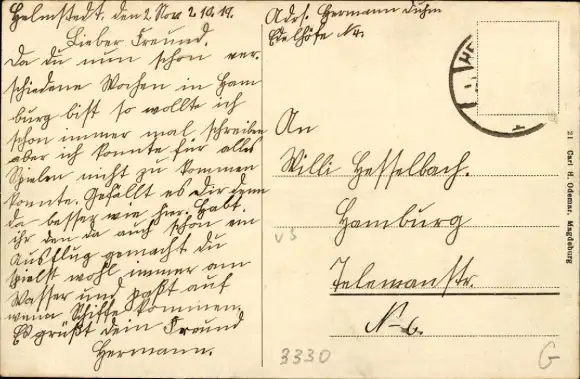 Helmstedt, den 2 Nov. 2.10.19.
Lieber Freund.
Da du nun schon ver-
schiedene Wochen in Ham
burg bist so wollte ich
schon immer mal schreiben
aber ich konnte für alles
Spielen nicht zu kommen
konnte. Gefällt es dir denn
da besser wie hier. Habt
ihr den da auch schon ein
Ausflug gemacht du
spielst wohl immer am
Wasser und paßt auf
wenn Schiffe kommen.
Es grüßt dein Freund
Hermann.
Adrs. Hermann Duhm
Edelhöfe N4.
HE
An
Willi Hesselbach.
Hamburg
Telemanstr.
N-6.
v5
3330
G
21 Carl H. Odemar, Magdeburg